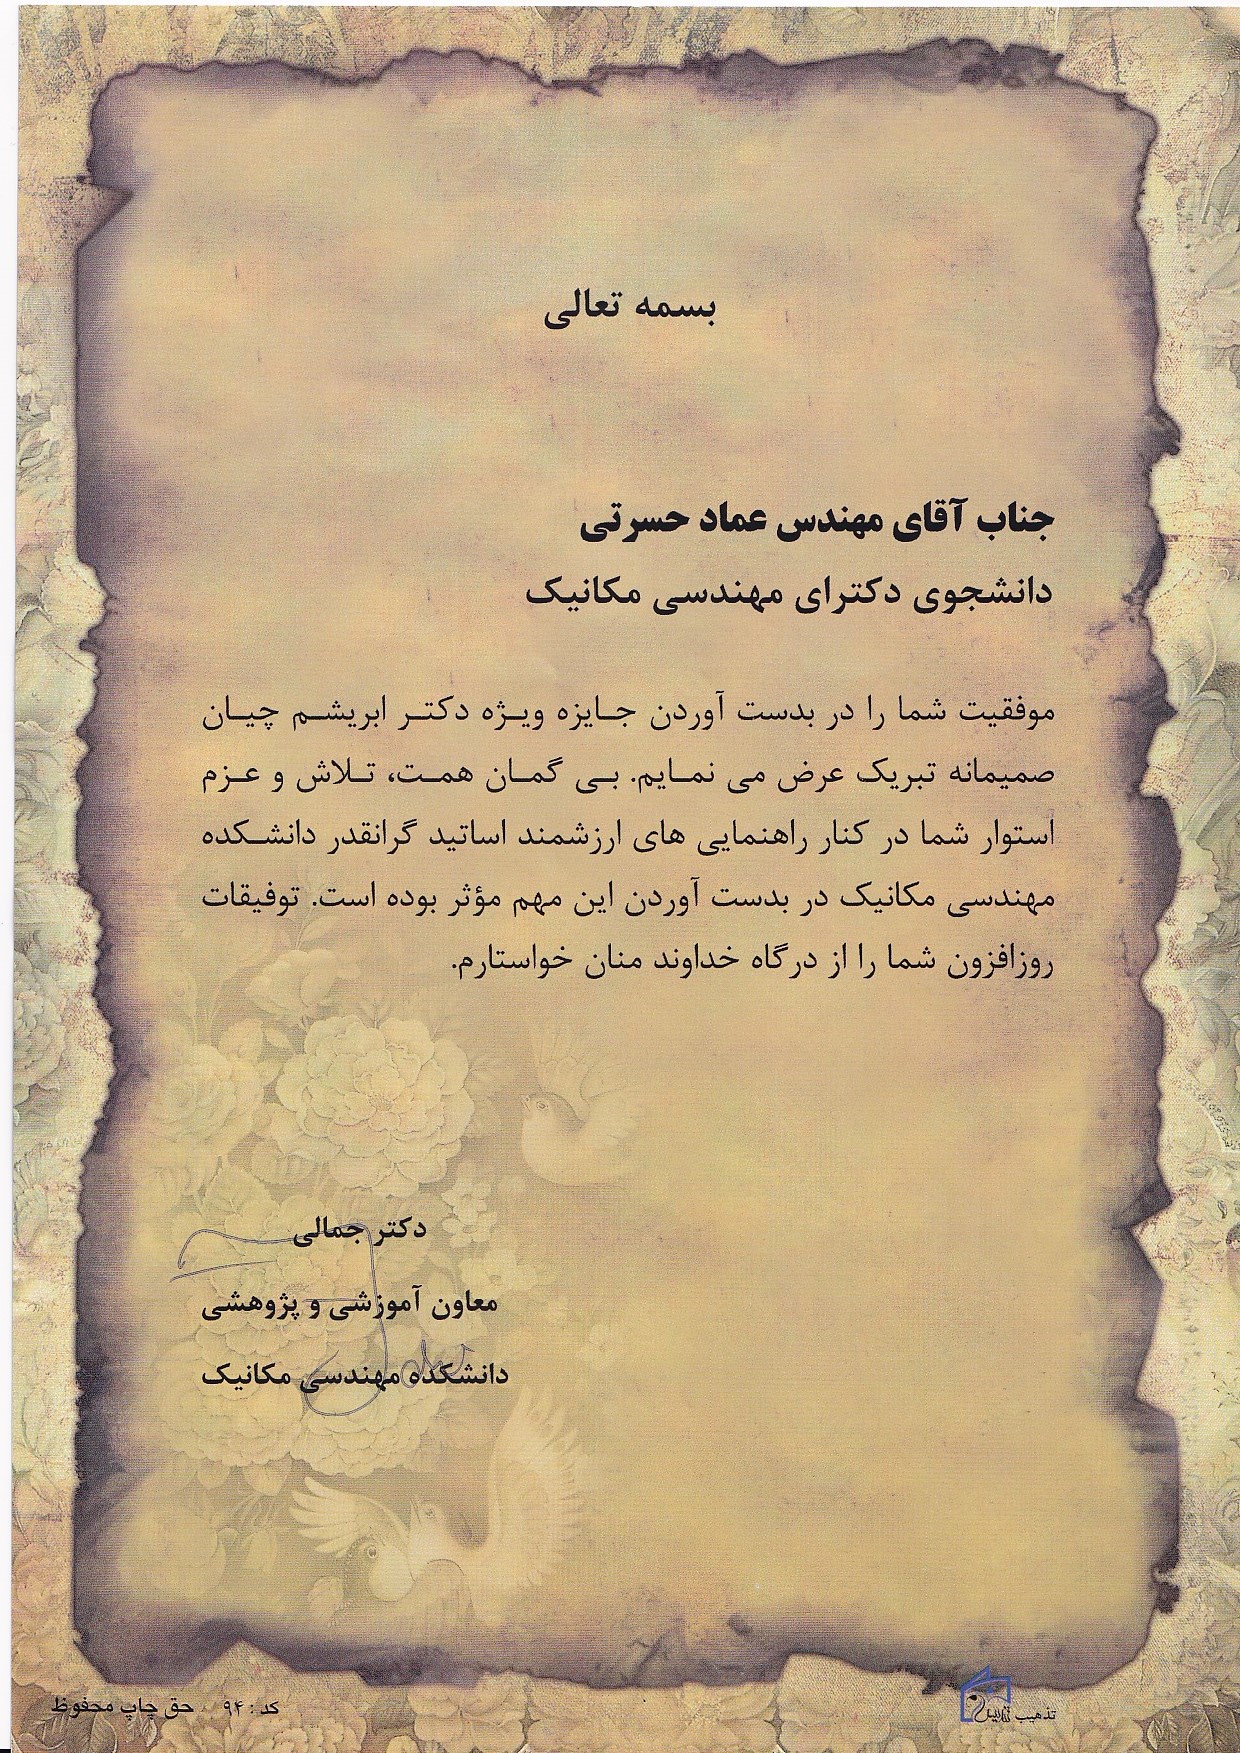 بسمه تعالی
جناب آقای مهندس عماد حسرتی
دانشجوی دکترای مهندسی مکانیک
موفقیت شما را در بدست آوردن جایزه ویژه دکتر ابریشم چیان
صمیمانه تبریک عرض می نمایم. بی گمان همت، تلاش و عزم
استوار شما در کنار راهنمایی های ارزشمند اساتید گرانقدر دانشکده
مهندسی مکانیک در بدست آوردن این مهم مؤثر بوده است. توفیقات
روزافزون شما را از درگاه خداوند منان خواستارم.
دکتر جمالی
معاون آموزشی و پژوهشی
دانشکده مهندسی مکانیک
کد : ۹۴ حق چاپ محفوظ
تذهیب